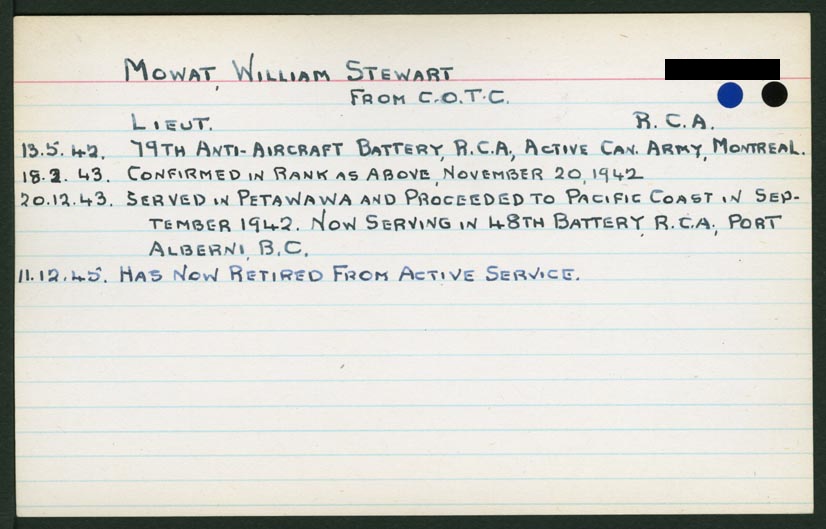 MOWAT, WILLIAM STEWART
FROM C.O.T.C.
LIEUT. R.C.A.
13.5.42. 79TH ANTI-AIRCRAFT BATTERY, R.C.A., ACTIVE CAN. ARMY, MONTREAL.
18.2.43. CONFIRMED IN RANK AS ABOVE, NOVEMBER 20, 1942
20.12.43. SERVED IN PETAWAWA AND PROCEEDED TO PACIFIC COAST IN SEP-
TEMBER 1942. NOW SERVING IN 48TH BATTERY, R.C.A., PORT
ALBERNI, B.C.
11.12.45. HAS NOW RETIRED FROM ACTIVE SERVICE.